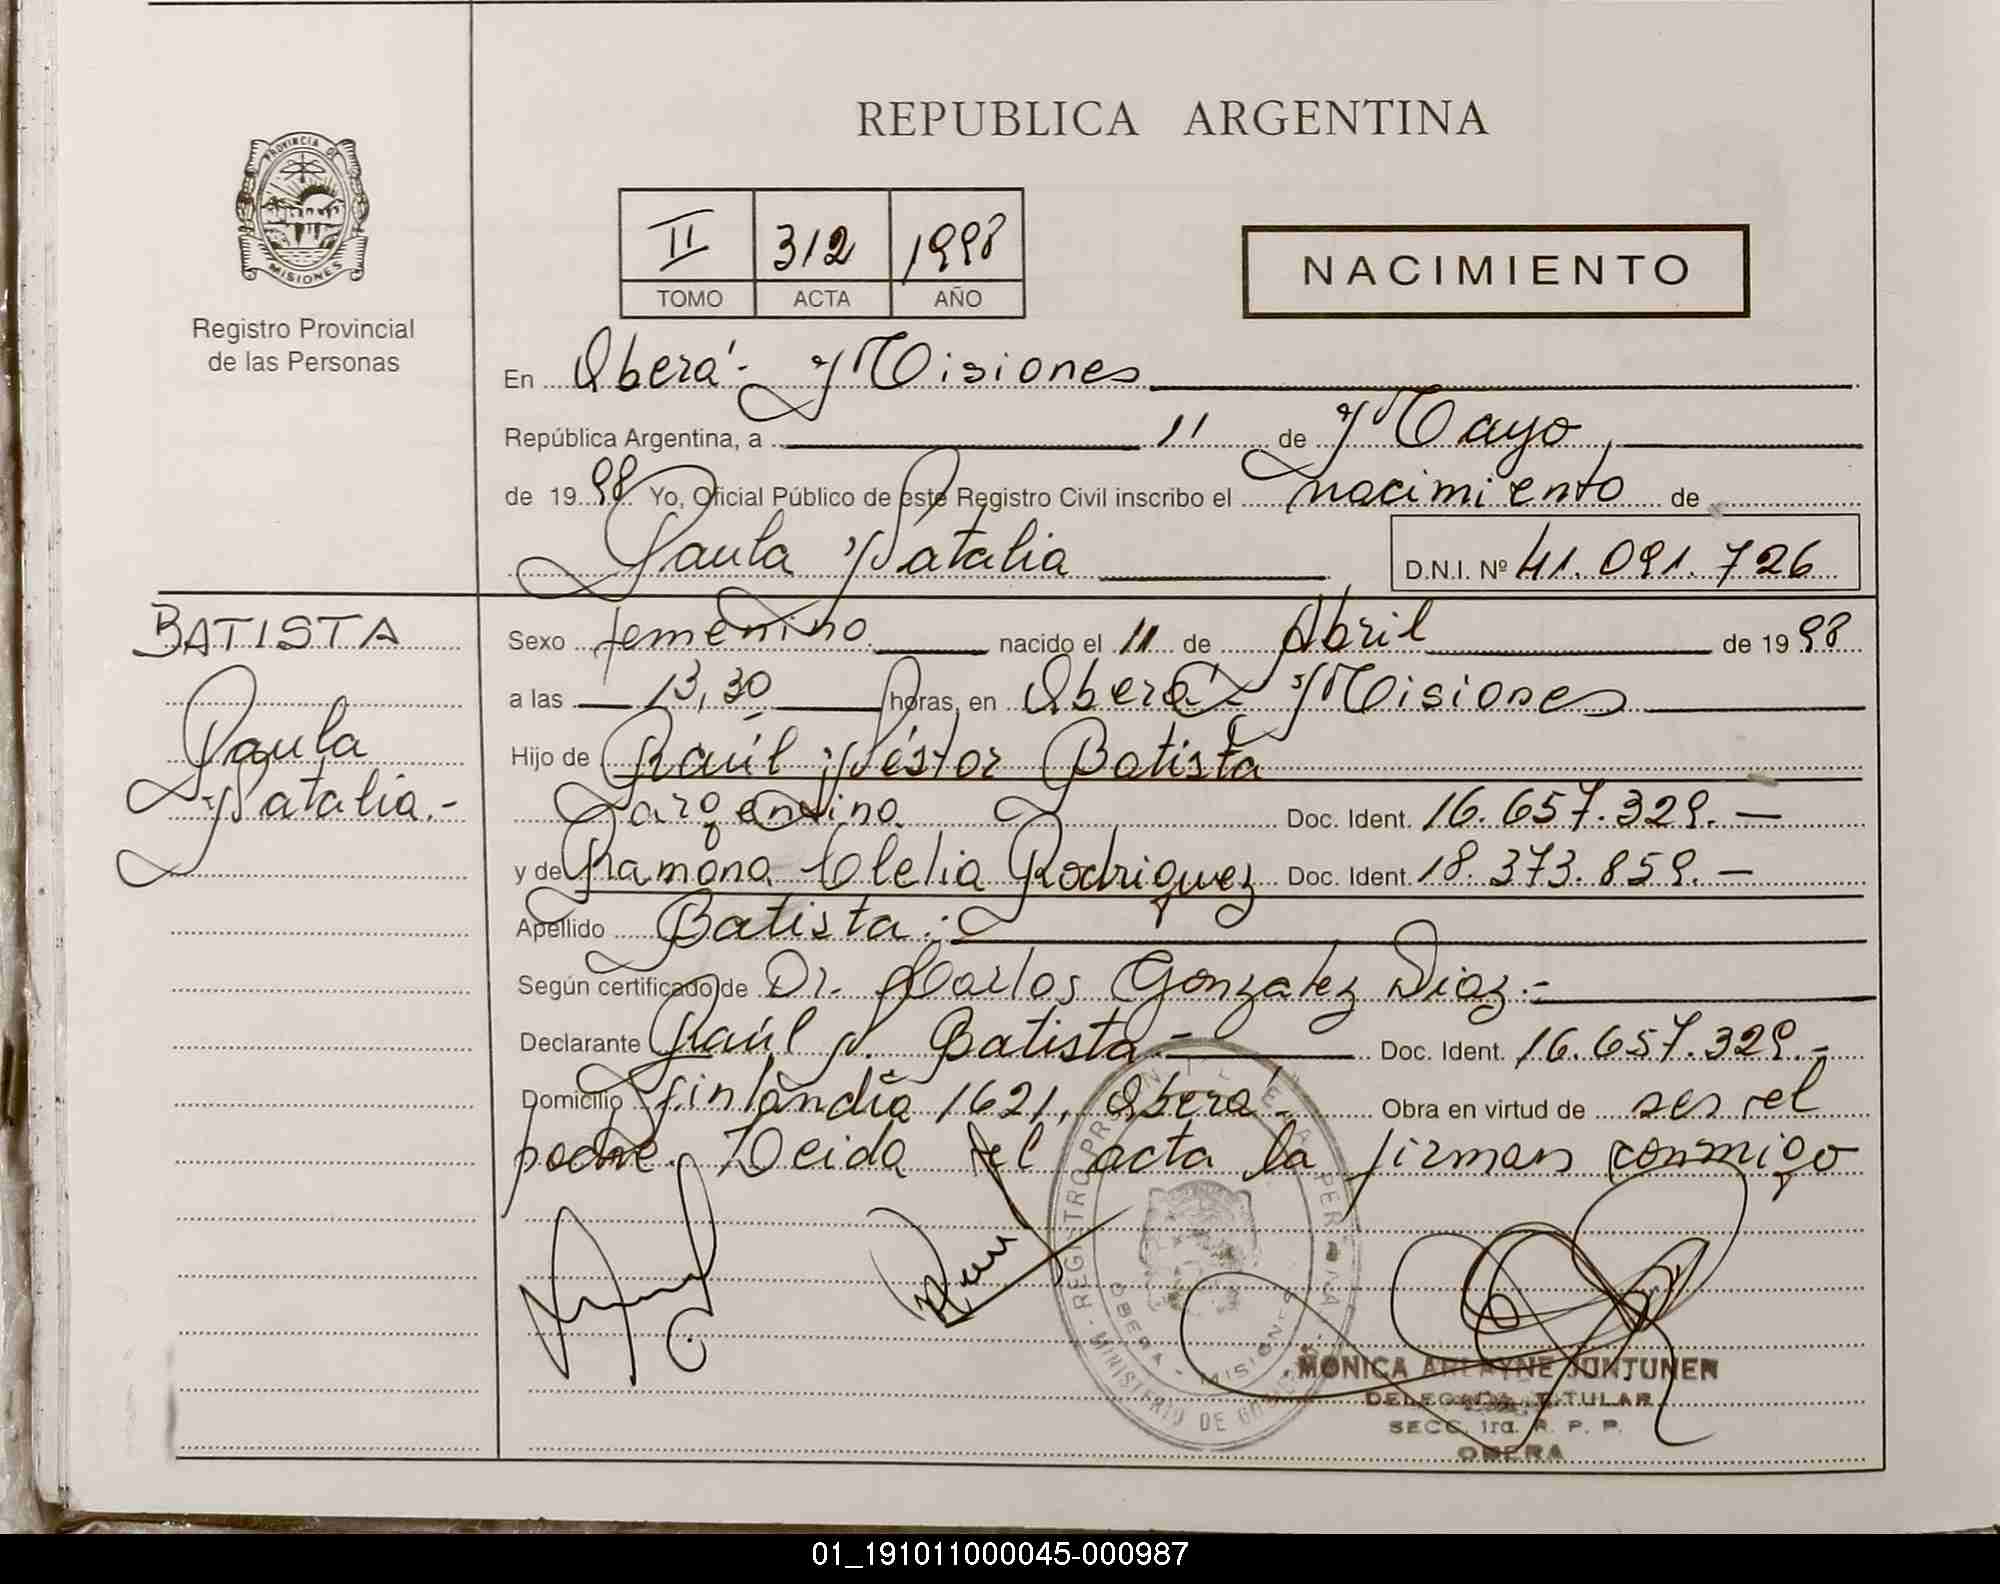 REPUBLICA ARGENTINA
PROVINCIA DE
MISIONES
Registro Provincial
de las Personas
II 312 1998
TOMO ACTA AÑO
NACIMIENTO
En Oberá - Misiones
República Argentina, a 11 de Mayo
de 1998 Yo, Oficial Público de este Registro Civil inscribo el nacimiento de
Paula Natalia D.N.I. Nº 41.091.726
BATISTA
Paula
Natalia.-
Sexo femenino nacido el 11 de Abril de 1998
a las 13,30 horas, en Oberá - Misiones
Hijo de Raúl Néstor Batista
argentino Doc. Ident. 16.657.329.-
y de Ramona Clelia Rodriguez Doc. Ident. 18.373.859.-
Apellido Batista.-
Según certificado de Dr. Carlos Gonzalez Diaz.-
Declarante Raúl N. Batista.- Doc. Ident. 16.657.329.-
Domicilio Finlandia 1621, Oberá.- Obra en virtud de ser el
padre. Leida el acta la firman conmigo
REGISTRO PROVINCIAL DE LAS PERSONAS
OBERA - MISIONES
MINISTERIO DE
MONICA JUNTUNEN
DELEGADA TITULAR
SECC. 1ra. R. P. P.
OBERA
01_191011000045-000987